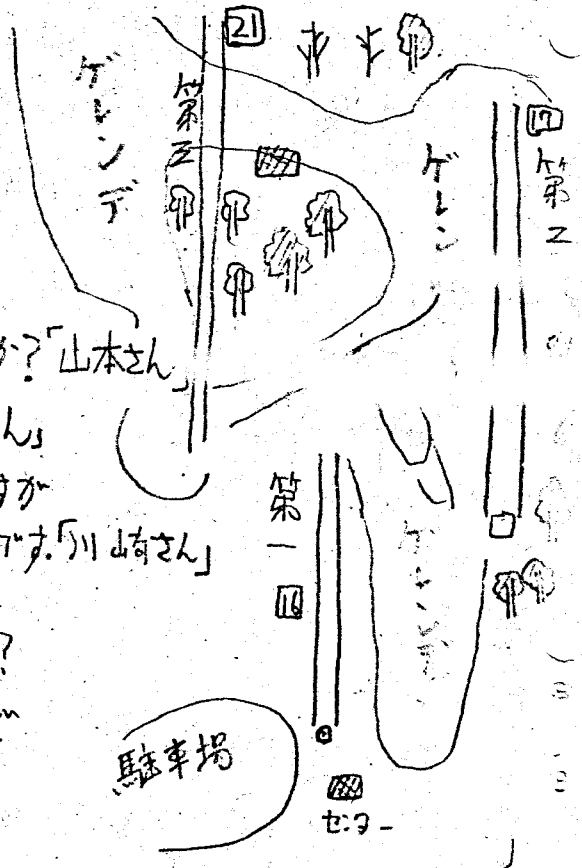 21
ゲレンデ
第三
17
第2
ゲレン
か?「山本さん」
ん」
すが
です。「川崎さん」
?
第一
16
ゲレンデ
駐車場
センター